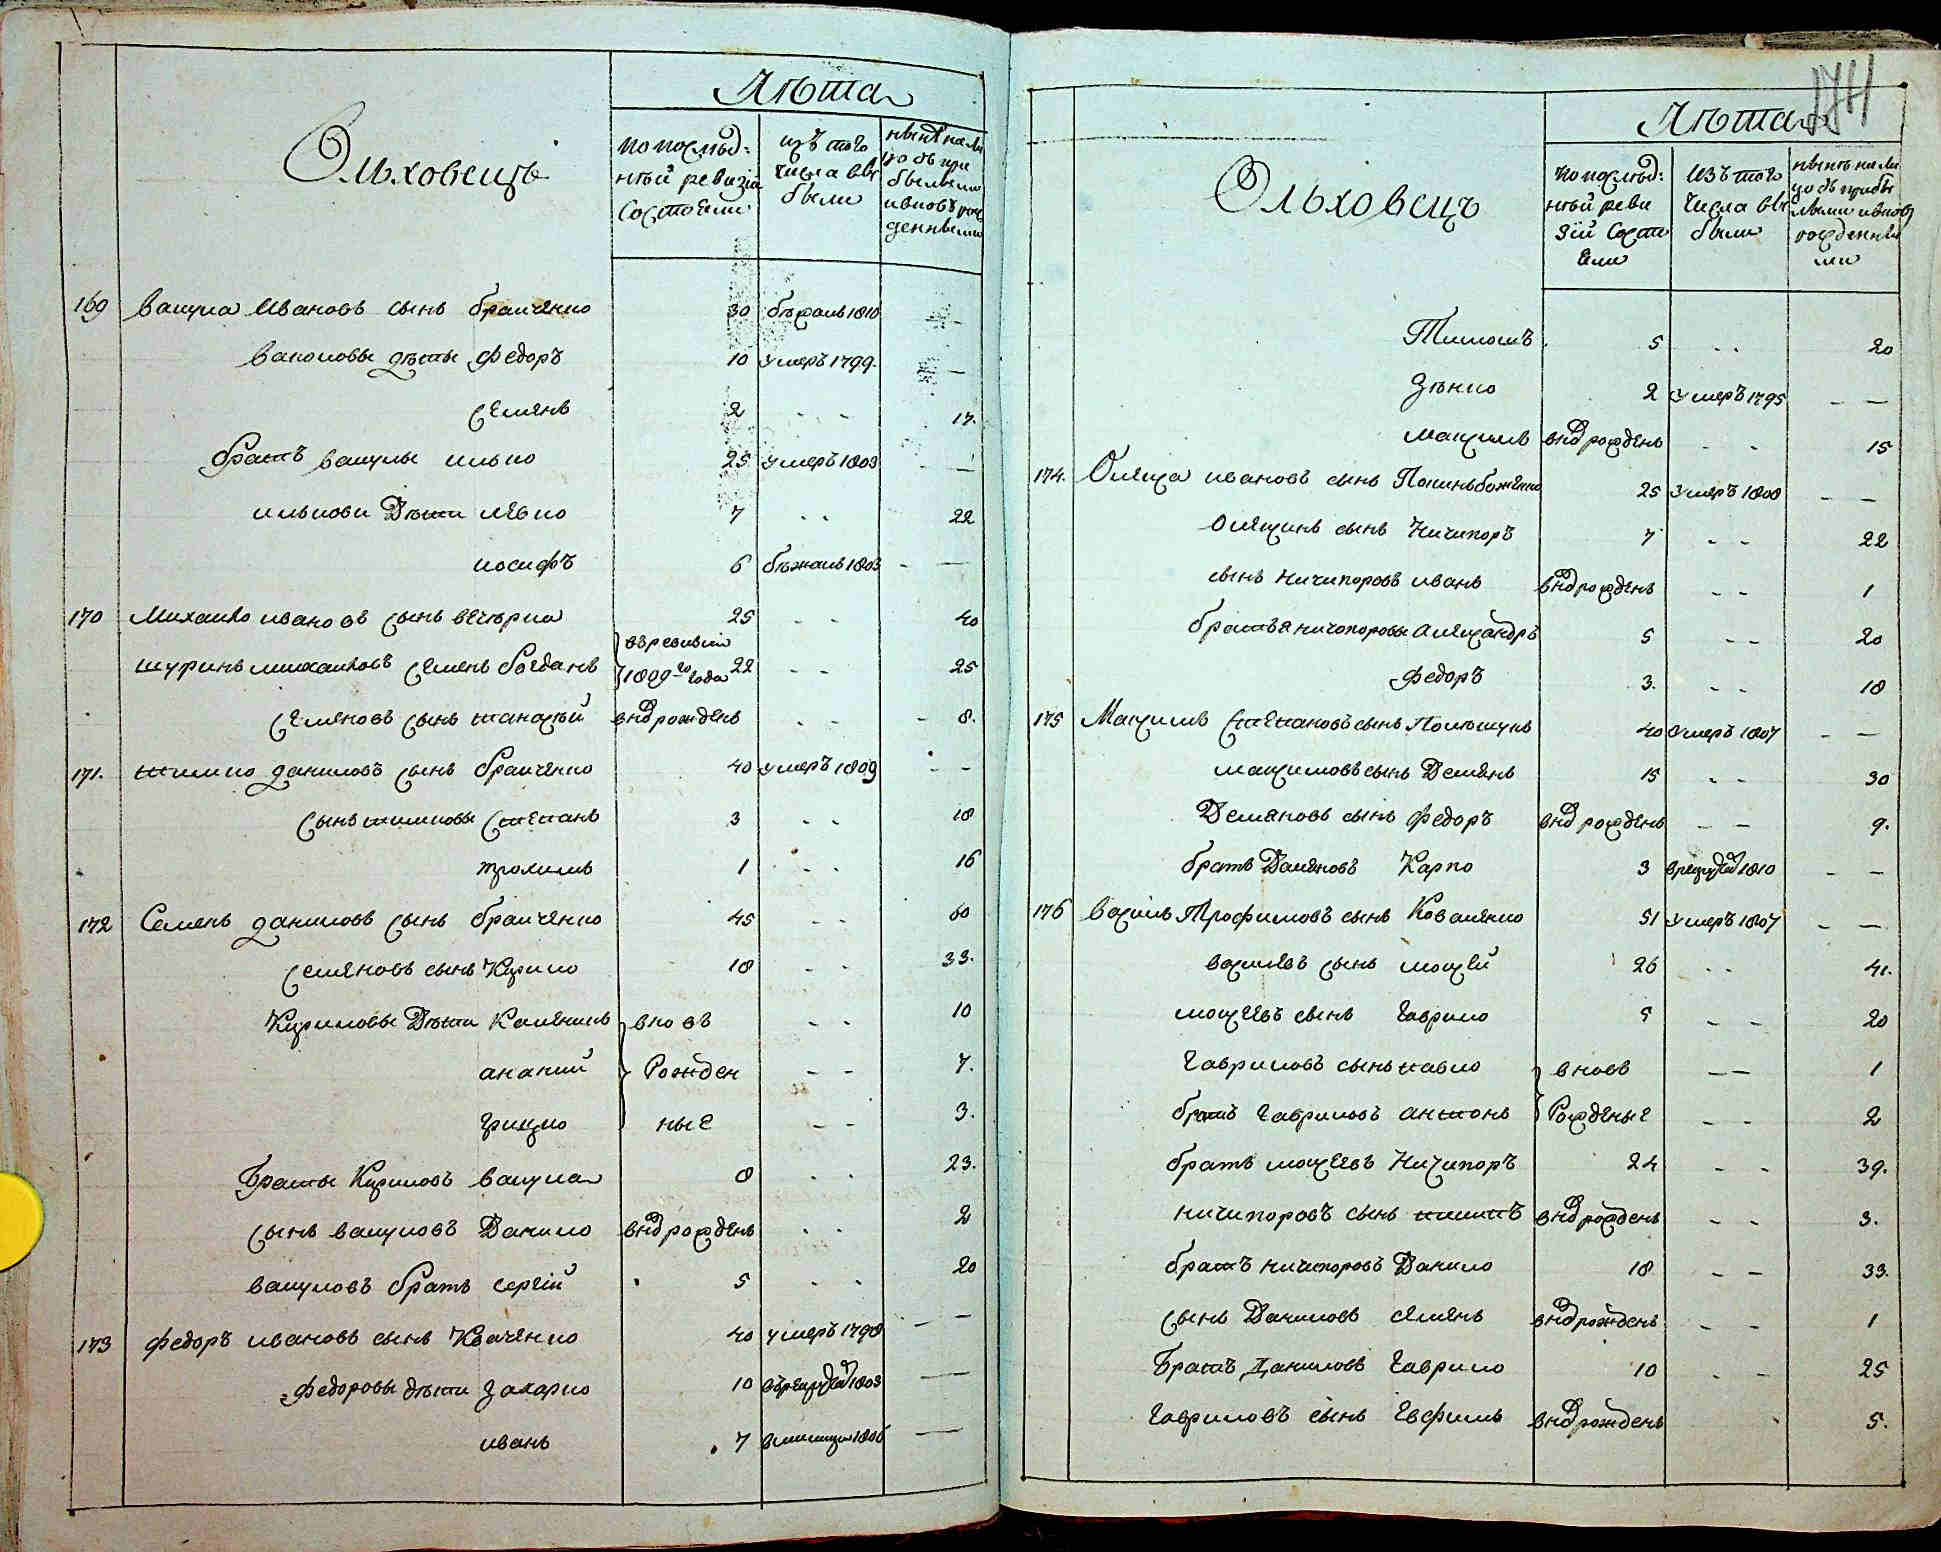 Лѣта
Ольховецъ
по послѣд:
ней ревизіи
состояли
изъ того
числа вы
были
нынѣ на ли
цо съ при
былыми
и вновь рож
денными
169 Вакула Ивановъ сынъ 30 бѣжалъ 1810 — —
Вакуловы дѣты Федоръ 10 умеръ 1799. —
Семенъ 2 - - 17.
братъ Вакулы Илько 25 умеръ 1803 - —
Ильковы Дѣти Левко 7 - - 22
Иосифъ 6 бѣжалъ 1803 - —
170 Михайло Ивановъ сынъ 25 - - 40
въ ревизіи
шуринъ михайловъ Семенъ Богданъ 1809го года 22 - - 25
Семеновъ сынъ Панасѣй внѡ рожденъ - - - 8.
171. Тимко Даниловъ сынъ 40 умеръ 1809 - -
Сынъ тимковы Степанъ 3 - - 18
1 - - 16
172 Семенъ Даниловъ сынъ 45 - - 60
Семеновъ сынъ Кирило 18 - - 33.
Кириловы Дѣти вновь - - 10
ананий Рожден - - 7.
грицко ные - - 3.
Браты Кириловъ Вакула 8 - - 23.
Сынъ Вакуловъ Данило внѡ рожденъ - - 2
Вакуловъ братъ Сергій 5 - - 20
173 Федоръ Ивановъ сынъ 40 умеръ 1798 - —
Федоровы дѣти Захарко 10 в рекруты 1803 —
иванъ 7 1806 —
Лѣта
Ольховецъ
по послѣд:
ней реви
зіи состо
яли
изъ того
числа вы
были
нынѣ на ли
цо съ прибы
лыми и вновь
рожденны
ми
Тимошъ 5 - - 20
2 умеръ 1795 - —
Максимъ внѡ рожденъ - - 15
174. Олекса Ивановъ сынъ 25 умеръ 1808 - —
Олексинъ сынъ Ничипоръ 7 - - 22
сынъ Ничипоровъ иванъ внѡ рожденъ - - 1
братья ничипоровы Александръ 5 - - 20
Федоръ 3. - - 18
175 Максимъ Степановъ сынъ 40 умеръ 1807 - —
максимовъ сынъ Демянъ 15 - - 30
Демяновъ сынъ Федоръ внѡ рожденъ - — 9.
братъ Демяновъ Карпо 3 в рекруты 1810 - -
176 Василь Трофимовъ сынъ Коваленко 51 умеръ 1807 - —
Василевъ сынъ мосѣй 26 - - 41.
мосеевъ сынъ Гаврило 5 - - 20
Гавриловъ сынъ павло вновь — 1
братъ Гавриловъ антонъ Рожденые - - 2
братъ мосеевъ Ничипоръ 24 - - 39.
ничипоровъ сынъ внѡ рожденъ - - 3.
братъ ничипоровъ Данило 18 - - 33.
Сынъ Даниловъ семенъ внѡ рожденъ - - 1
Братъ Даниловъ Гаврило 10 - - 25
Гавриловъ сынъ Евфимъ внѡ рожденъ 5.